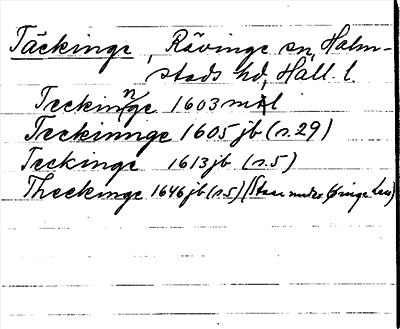 Täckinge, Rävinge sn, Halm-
stads hd, Hall. l.
Teckinnge 1603 mtl
Teckinnge 1605 jb (n.29)
Teckinge 1613 jb (n.5)
Theckinge 1646 jb (n.5) (Staar under